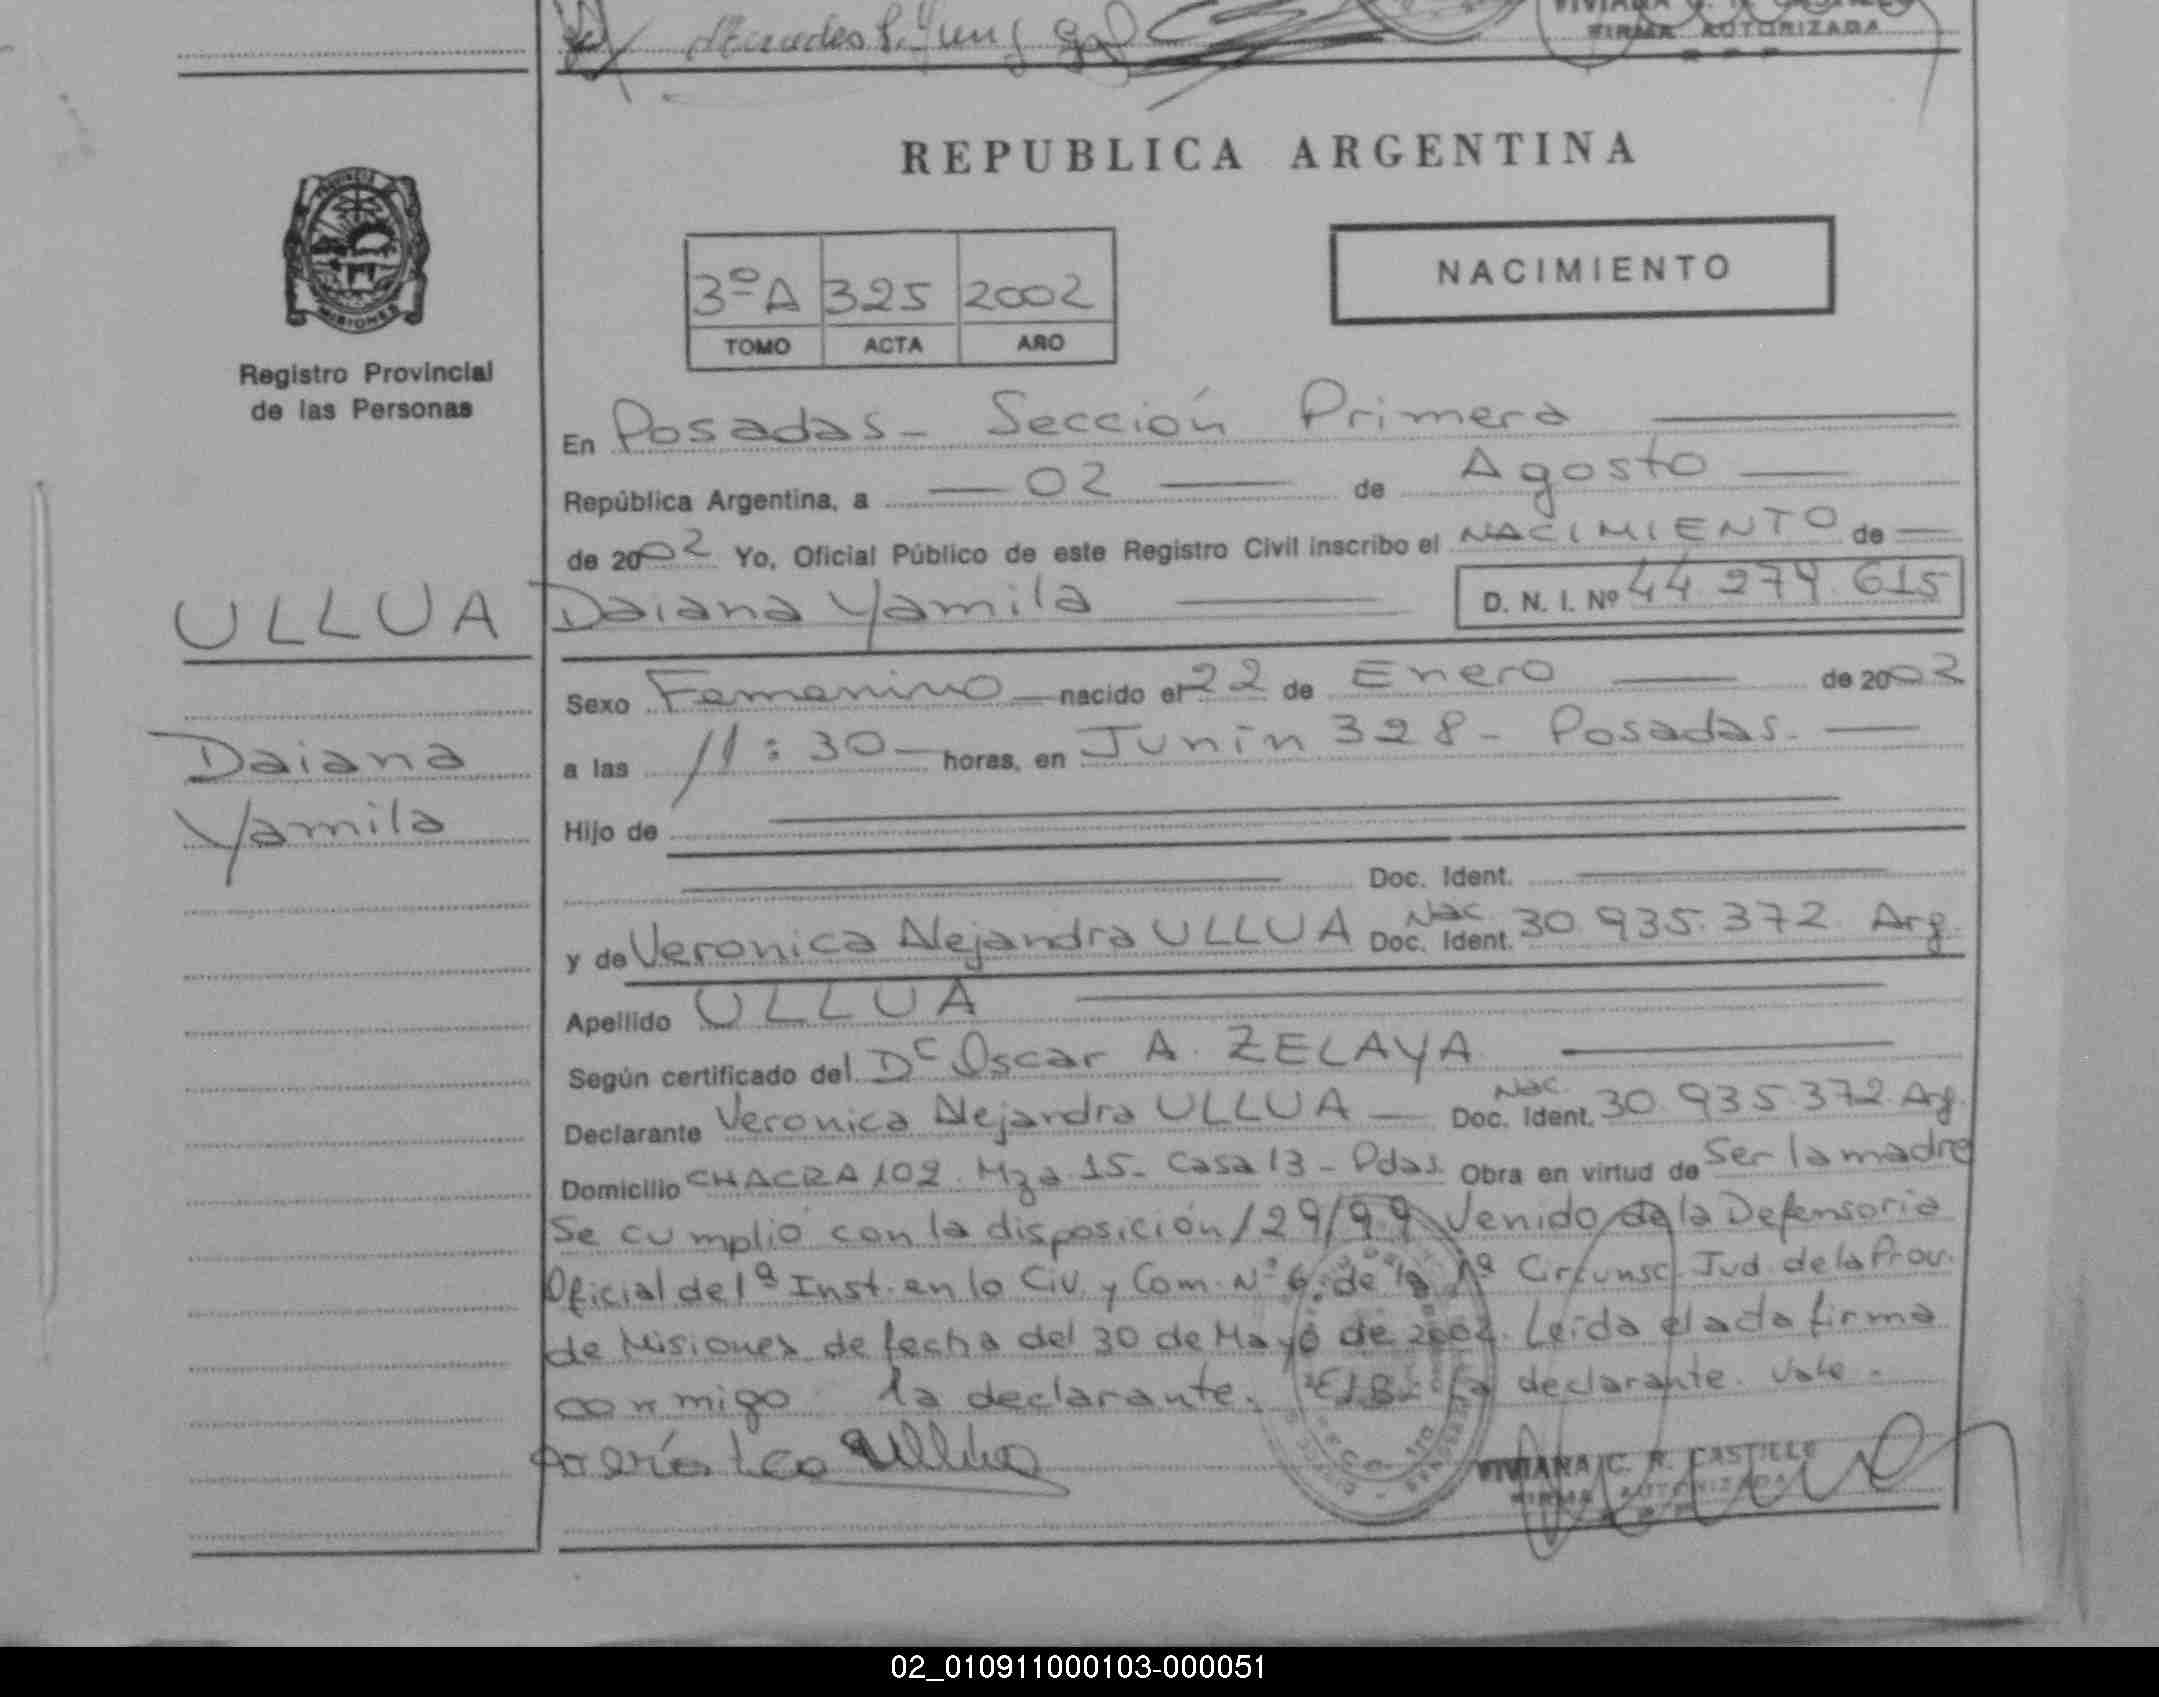 VIVIANA C. R. CASTILLO
FIRMA AUTORIZADA
REPUBLICA ARGENTINA
PROVINCIA
MISIONES
Registro Provincial
de las Personas
3º A 325 2002
TOMO ACTA AÑO
NACIMIENTO
En Posadas - Sección Primera
República Argentina, a 02 de Agosto
de 2002 Yo, Oficial Público de este Registro Civil inscribo el NACIMIENTO de
ULLUA Daiana Yamila D. N. I. Nº 44.274.615
Sexo Femenino nacido el 22 de Enero de 2002
Daiana
a las 11:30 horas, en Junín 328 - Posadas.
Yamila
Hijo de
Doc. Ident.
y de Veronica Alejandra ULLUA Nac. Doc. Ident. 30.935.372 Arg.
Apellido ULLUA
Según certificado del Dr Oscar A. ZELAYA
Declarante Veronica Alejandra ULLUA Nac. Doc. Ident. 30.935.372 Arg.
Domicilio CHACRA 102. Mza 15. Casa 13 - Pdas. Obra en virtud de Ser la madre
Se cumplió con la disposición 129/99 Venido de la Defensoria
Oficial de 1ª Inst. en lo Civ. y Com. Nº 6. de la 1ª Circunsc. Jud. de la Prov.
de Misiones de fecha del 30 de Mayo de 2002. Leída el acta firma
conmigo la declarante. la declarante. Vale.
Ullua
VIVIANA C. R. CASTILLO
FIRMA AUTORIZADA
02_010911000103-000051